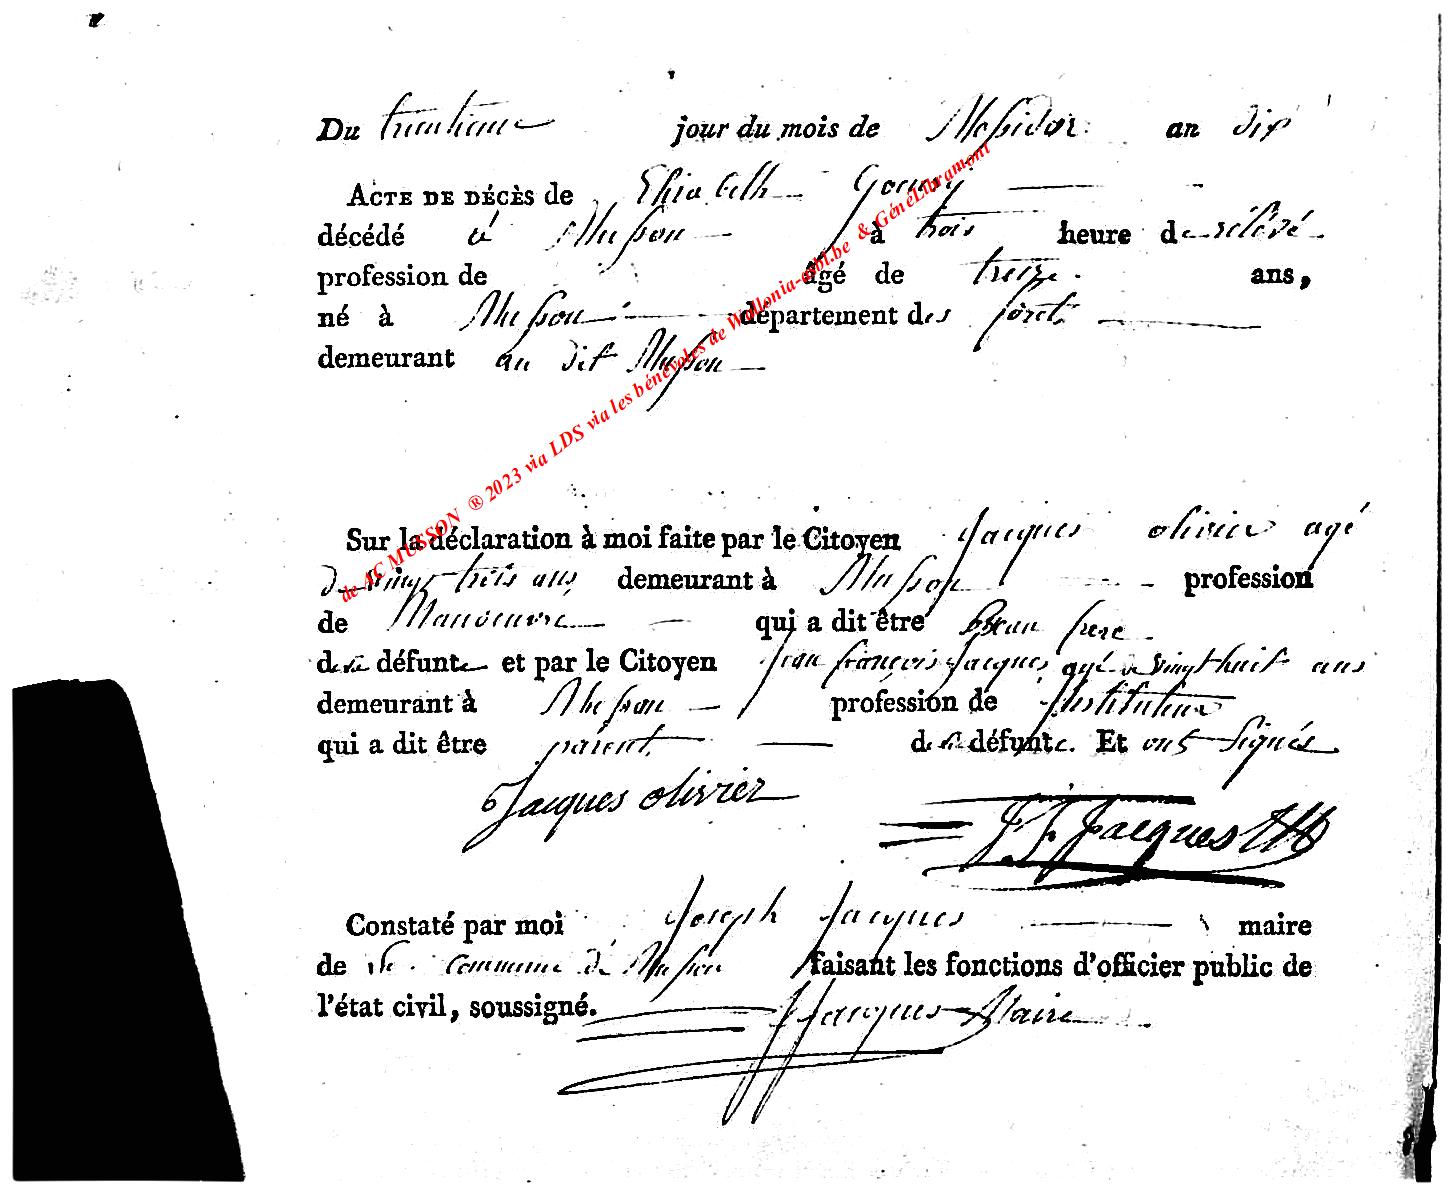 Du trentieme jour du mois de Messidor an dix
ACTE DE DÉCÈS de Elisabeth
décédé à Musson à trois heure de rélévé
profession de âgé de treize ans,
né à Musson département des forêts
demeurant au dit Musson
de AC MUSSON ® 2023 via LDS via les bénévoles de Wallonia-asbl.be & GénéLibramont
Sur la déclaration à moi faite par le Citoyen Jacques olivier agé
de vingt trois ans demeurant à Musson profession
de Manoeuvre qui a dit être Beau frere
de la défunte et par le Citoyen Jean françois Jacques agé de vingt huit ans
demeurant à Musson profession de Instituteur
qui a dit être parent de la défunte. Et ont signés
Jacques olivier
J F Jacques
Constaté par moi Joseph Jacques maire
de la commune de Musson faisant les fonctions d'officier public de
l'état civil, soussigné. J Jacques Maire